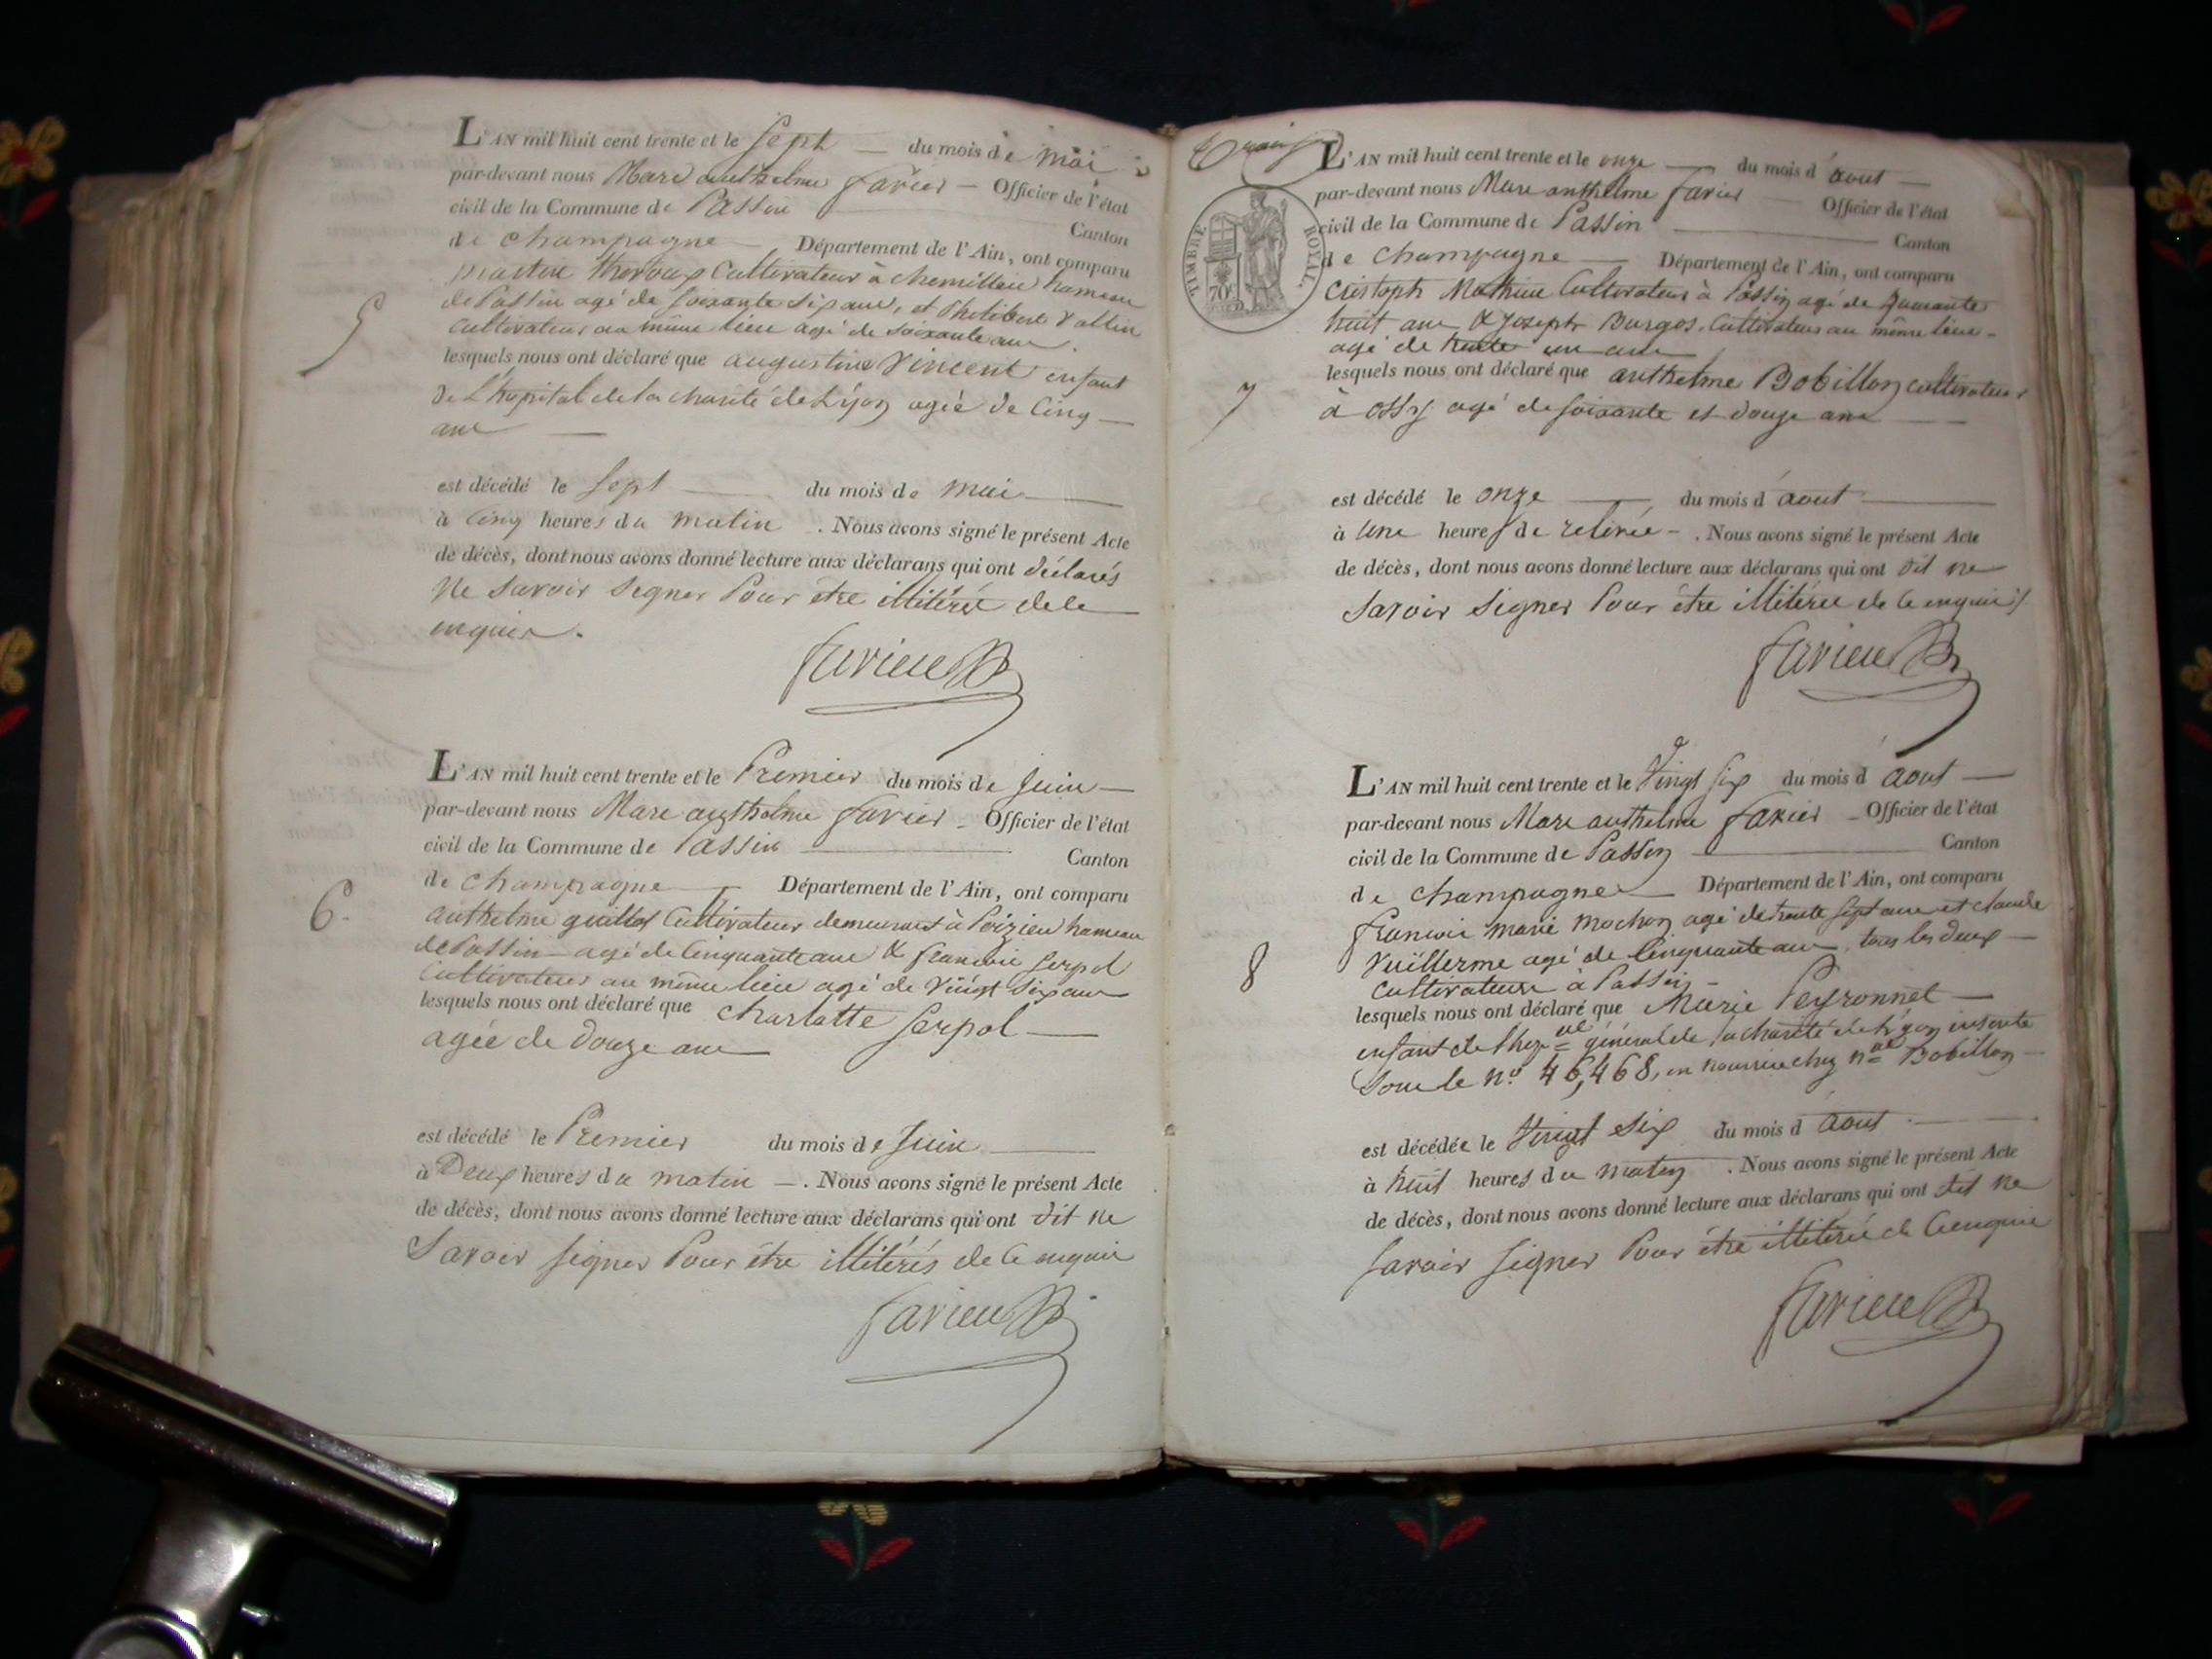 L'AN mil huit cent trente et le Sept du mois de mai
par-devant nous Marc anthelme favier Officier de l'état
civil de la Commune de Passin
Canton
de champagne Département de l'Ain, ont comparu
cultivateur à chemillieu hameau
de Passin agé de soixante six ans, et Philibert Vallin
cultivateur au même lieu agé de soixante ans
5
lesquels nous ont déclaré que augustine Vincent enfant
de l'hopital de la charité de Lyon agée de cinq
ans
est décédé le Sept du mois de mai
à cinq heures du matin . Nous avons signé le présent Acte
de décès, dont nous avons donné lecture aux déclarans qui ont déclarés
ne savoir signer Pour être illitérés de ce
enquis.
favier
L'AN mil huit cent trente et le Premier du mois de Juin
par-devant nous Marc anthelme favier Officier de l'état
civil de la Commune de Passin
Canton
de champagne Département de l'Ain, ont comparu
6.
anthelme guillot cultivateur demeurant à Poizieu hameau
de Passin agé de cinquante ans & francois serpol
cultivateur au même lieu agé de vingt six ans
lesquels nous ont déclaré que charlotte serpol
agée de douze ans
est décédé le Premier du mois de Juin
à Deux heures du matin . Nous avons signé le présent Acte
de décès, dont nous avons donné lecture aux déclarans qui ont dit ne
savoir signer Pour être illitérés de ce enquis
favier
TIMBRE ROYAL.
70c
L'AN mil huit cent trente et le onze du mois d'aout
par-devant nous Marc anthelme favier Officier de l'état
civil de la Commune de Passin
Canton
de champagne Département de l'Ain, ont comparu
cristoph Mathieu Cultivateur à Passin agé de quarante
huit ans & joseph Burgos Cultivateur au même lieu
agé de trente un ans
7
lesquels nous ont déclaré que anthelme Bobillon cultivateur
à ossy agé de soixante et douze ans
est décédé le onze du mois d'aout
à une heures de relevée . Nous avons signé le présent Acte
de décès, dont nous avons donné lecture aux déclarans qui ont dit ne
savoir signer Pour être illitérés de ce enquis
favier
L'AN mil huit cent trente et le vingt six du mois d'aout
par-devant nous Marc anthelme favier Officier de l'état
civil de la Commune de Passin
Canton
de champagne Département de l'Ain, ont comparu
francois marie mochon agé de trente sept ans et claude
8
Vuillerme agé de cinquante ans, tous les deux
cultivateurs à Passin
lesquels nous ont déclaré que Marie Peyronnet
enfant de générale de la charité de Lyon inscrite
sous le no. 46,468, en nourrice chez Bobillon
est décédée le vingt six du mois d'aout
à huit heures du matin . Nous avons signé le présent Acte
de décès, dont nous avons donné lecture aux déclarans qui ont dit ne
savoir signer Pour être illitérés de ce enquis
favier